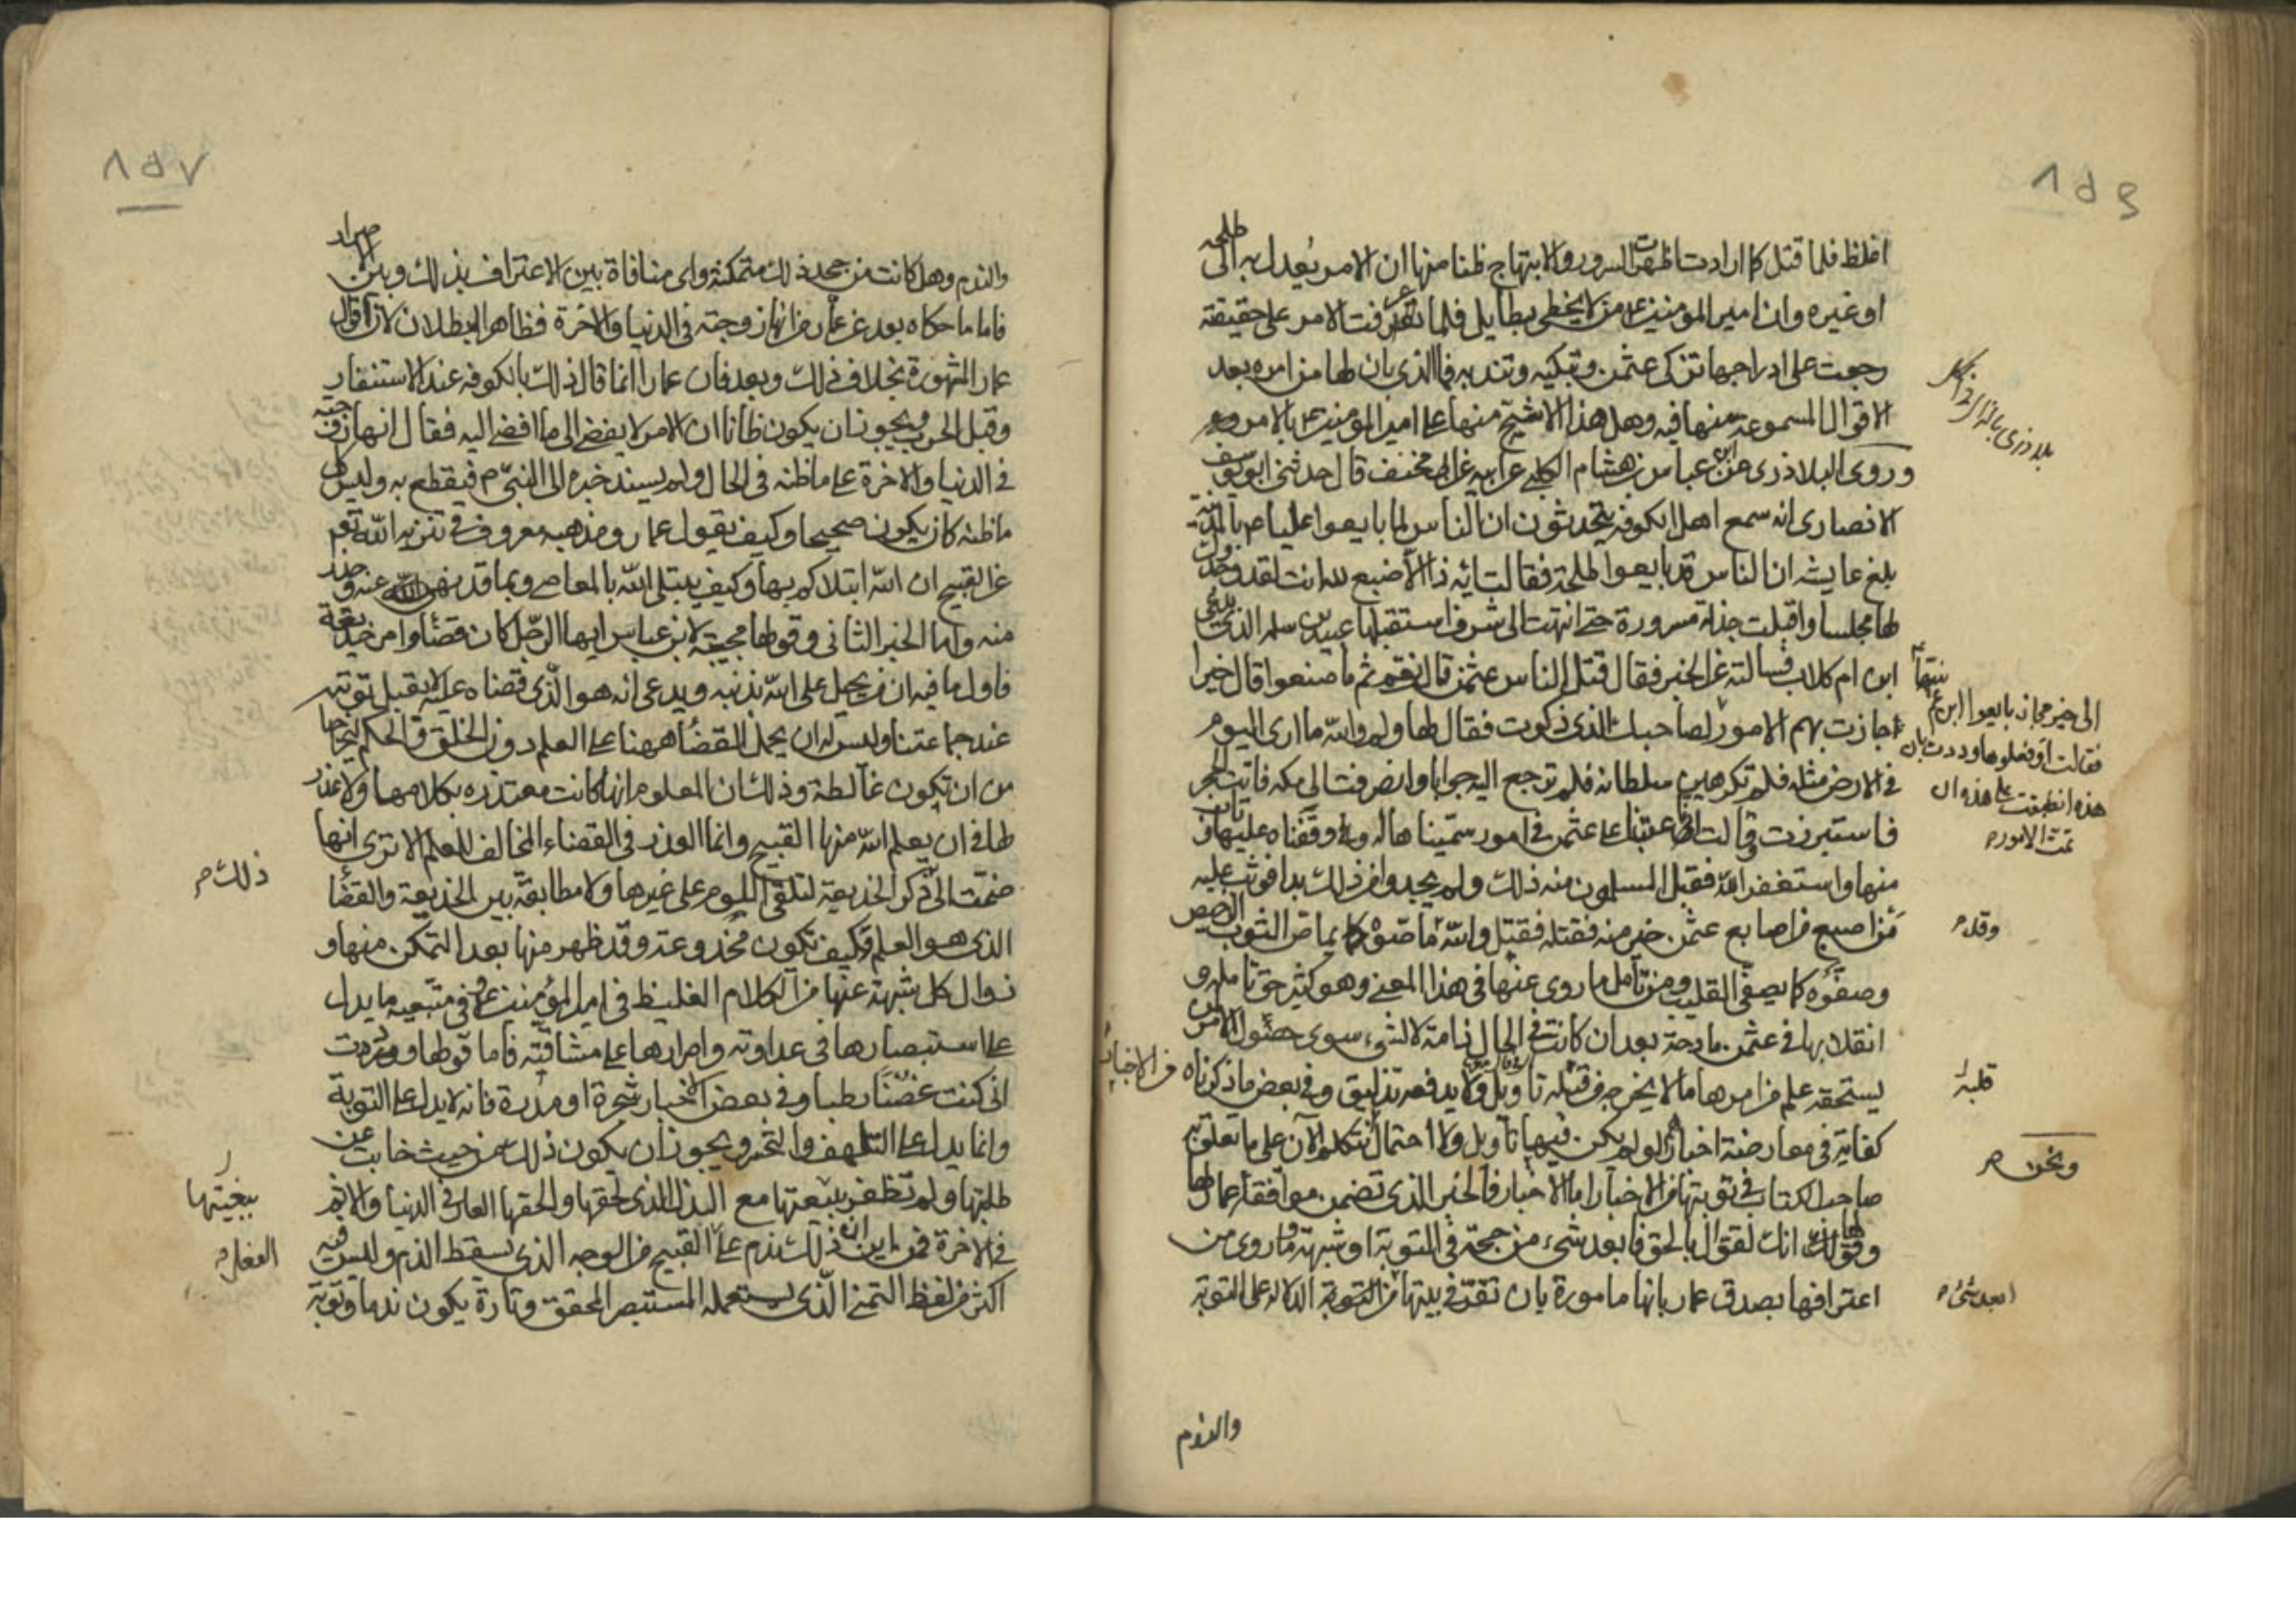 افلظ فلما قتل كما ارادت اظهرت السرور والابتهاج ظنا منها ان الامر يعدل به الى طلحه
او غيره وان امير المومنين ع من لا يخطى بطايل فلما تعرفت الامر على حقيقته
رجعت على ادراجها تزكى عثمن وتبكيه وتندبه فما الذى بان لها من امره بعد
الاقوال المسموعة منها فيه وهل هذا الا تشيّع منها على امير المومنين ع بالامر
وروى البلاذرى عن عباس بن هشام الكلبى عن ابيه عن ابى مخنف قال حدثنى ابو يوسف
الانصارى انه سمع اهل الكوفه يتحدثون ان الناس لما بايعوا عليا ع بالمدينة
بلغ عايشه ان الناس قد بايعوا لطلحة فقالت ايه ذا الاصبع لله انت لقد وجدوك
لها مجلسا واقبلت جذلة مسرورة حتى انتهت الى شرف استقبلها عبيد بن سلمه الذى يدعى
ابن ام كلاب فسالته عن الخبر فقال قتل الناس عثمن قال نعم ثم ما صنعوا قال خيرا
اجازت بهم الامور لصاحبك الذى ذكرت فقال لها ولم والله ما ارى اليوم
فى الارض مثله فلم تكرهين سلطانه فلم ترجع اليه جوابا وانصرفت الى مكه فاتت الحجر
فاستترت وقالت انا عتبنا على عثمن فى امور سميناها له ووقفناه عليها فتاب
منها واستغفر الله فقبل المسلمون منه ذلك ولم يجدوا من ذلك بدا فوثب عليه
من اصبع من اصابع عثمن خير منه فقتله فقتل والله ماصوه كما يماص الثوب الرحيض
وصفوه كما يصفى القليب ومن تامل ما روى عنها فى هذا المعنى وهو كثير حق تامله
انقلابها فى عثمن مادحة بعد ان كانت فى الحال ذامة لا لشىء سوى حصول الامر لمن
يستحقه علم من امرها ما لا يخرجه من قتله تاويل ولا يدفعه تزليق وفى بعض ما ذكرناه من الاخبار
كفاية فى معارضة اخبار لو لم يكن فيها تاويل ولا احتمال نتكلم الان على ما تعلق به
صاحب الكتاب فى توبتها من الاخبار اما الاخبار فالخبر الذى تضمن موافقة عمار لها
وقولها انك لقوال بالحق فابعد شىء من حجة فى التوبة او شبهة وما روى من
اعترافها بصدق عمار بانها مامورة بان تقر فى بيتها من التوبة الدلاله على التوبة
والندم
بلاذرى بالذال
الى خير مجاز بايعوا ابن عم
فقالت اوفعلوها وددت بان
هذه انطبقت على هذه ان
تمت الامور
وقلم
قلبه
ونحن
ابعد شىء
والندم وهل كانت من جحد ذلك متمكنة واى منافاة بين الاعتراف بذلك وبين الاصرار
فاما ما حكاه بعد عن عمار من انها زوجته فى الدنيا والاخرة فظاهر البطلان لان اقوال
عمار المشهورة بخلاف ذلك وبعد فان عمارا انما قال ذلك بالكوفه عند الاستنفار
وقبل الحرب ويجوز ان يكون ظانا ان الامر لا يفضى الى ما افضى اليه فقال انها زوجته
فى الدنيا والاخرة على ما ظنه فى الحال ولم يسند خبره الى النبى م فيقطع به وليس كل
ما ظنه كان يكون صحيحا وكيف يقول عمار ومذهبه معروف فى تنزيه الله تعم
عن القبيح ان الله ابتلاكم بها وكيف يبتلى الله بالمعاصى وبما قد نهى الله عنه وحذر
منه واما الخبر الثانى وقولها مجيبة لابن عباس ايها الرجل كان قضاء وامر خديعة
فاول ما فيه ان من يحيل على الله بذنبه ويدعى انه هو الذى قضاه عليه لا يقبل توبته
عند جماعتنا وليس له ان يحمل القضا ههنا على العلم دون الخلق والحكم ليخرجها
من ان تكون غالطة وذلك ان المعلوم انها كانت معتذره بكلامها ولا عذر
لها فى ان يعلم الله منها القبيح وانما العذر فى القضاء المخالف للعلم الا ترى انها
ضمت الى ذكر الخديعة لتلقى اللوم على غيرها ولا مطابقة بين الخديعة والقضا
الذى هو العلم وكيف تكون مخدوعة وقد ظهر منها بعد التمكن منها و
زوال كل شبهة عنها من الكلام الغليظ فى امير المؤمنين ع وفى متبعيه ما يدل
على استبصارها فى عداوته واصرارها على مشاقته فاما قولها وددت
انى كنت غصنا رطبا وفى بعض الاخبار شجرة او مدرة فانه لا يدل على التوبة
وانما يدل على التلهف والتحسر ويجوز ان يكون ذلك من حيث خابت عن
طلبتها ولم تظفر ببيعتها مع البذل الذى لحقها والحقها العار فى الدنيا والاثم
فى الاخرة فمن اين ان ذلك ندم على القبيح من الوجه الذى يسقط الذم وليس فيه
اكثر من لفظ التمنى الذى يستعمله المستبصر المحقق وتارة يكون ندما وتوبة
ذلك م
ببغيتها
الفعل
٨٥٧